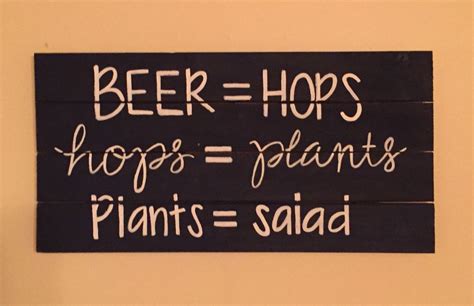 BEER = HOPS
hops = plants
Plants = salad